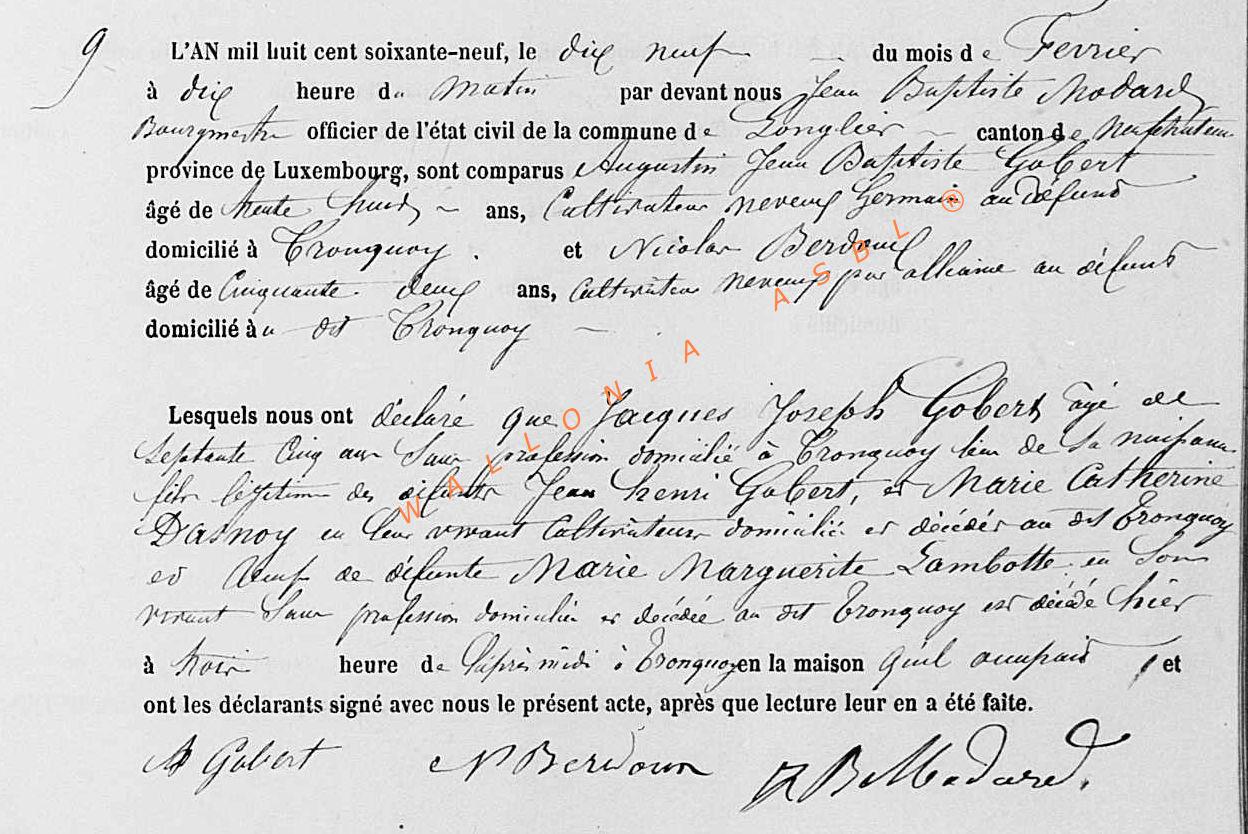 9
L'AN mil huit cent soixante-neuf, le dix neuf du mois de Fevrier
à dix heure du matin par devant nous Jean Baptiste Modard
Bourgmestre officier de l'état civil de la commune de Longlier canton de Neufchateau
province de Luxembourg, sont comparus Augustin Jean Baptiste Gobert
âgé de trente huit ans, Cultivateur neveux Germain au défunt
domicilié à Tronquoy. et Nicolas
âgé de Cinquante deux ans, Cultivateur neveux par alliance au défunt
domicilié à u dit Tronquoy
Lesquels nous ont déclaré que Jacques Joseph Gobert agé de
septante Cinq ans Sans profession domicilié à Tronquoy lieu de sa naissance
fils légitime des défunts Jean henri Gobert, et Marie Catherine
Dasnoy en leur vivant Cultivateurs domiciliés et décédés au dit Tronquoy
et veuf de défunte Marie Marguerite Lambotte en Son
vivant Sans profession domiciliée et décédée au dit Tronquoy est décédé hier
à trois heure de l'après midi à Tronquoy en la maison qu'il occupait et
ont les déclarants signé avec nous le présent acte, après que lecture leur en a été faite.
Gobert N Berdoux JB Modard.
WALLONIA ASBL ®